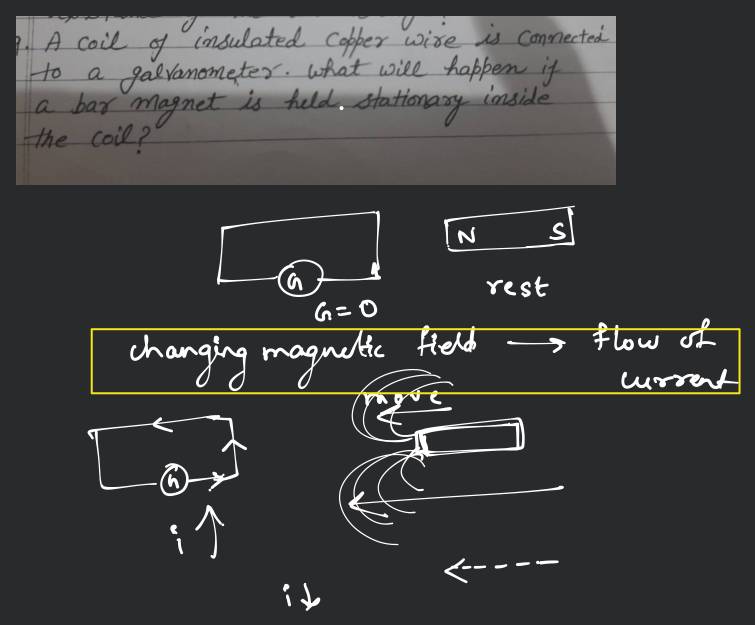 9. A coil of insulated copper wire is connected
to a galvanometer. what will happen if
a bar magnet is held. stationary inside
the coil?
N S
G
rest
G = 0
changing magnetic field → flow of
current
move
G
i ↑
i ↓